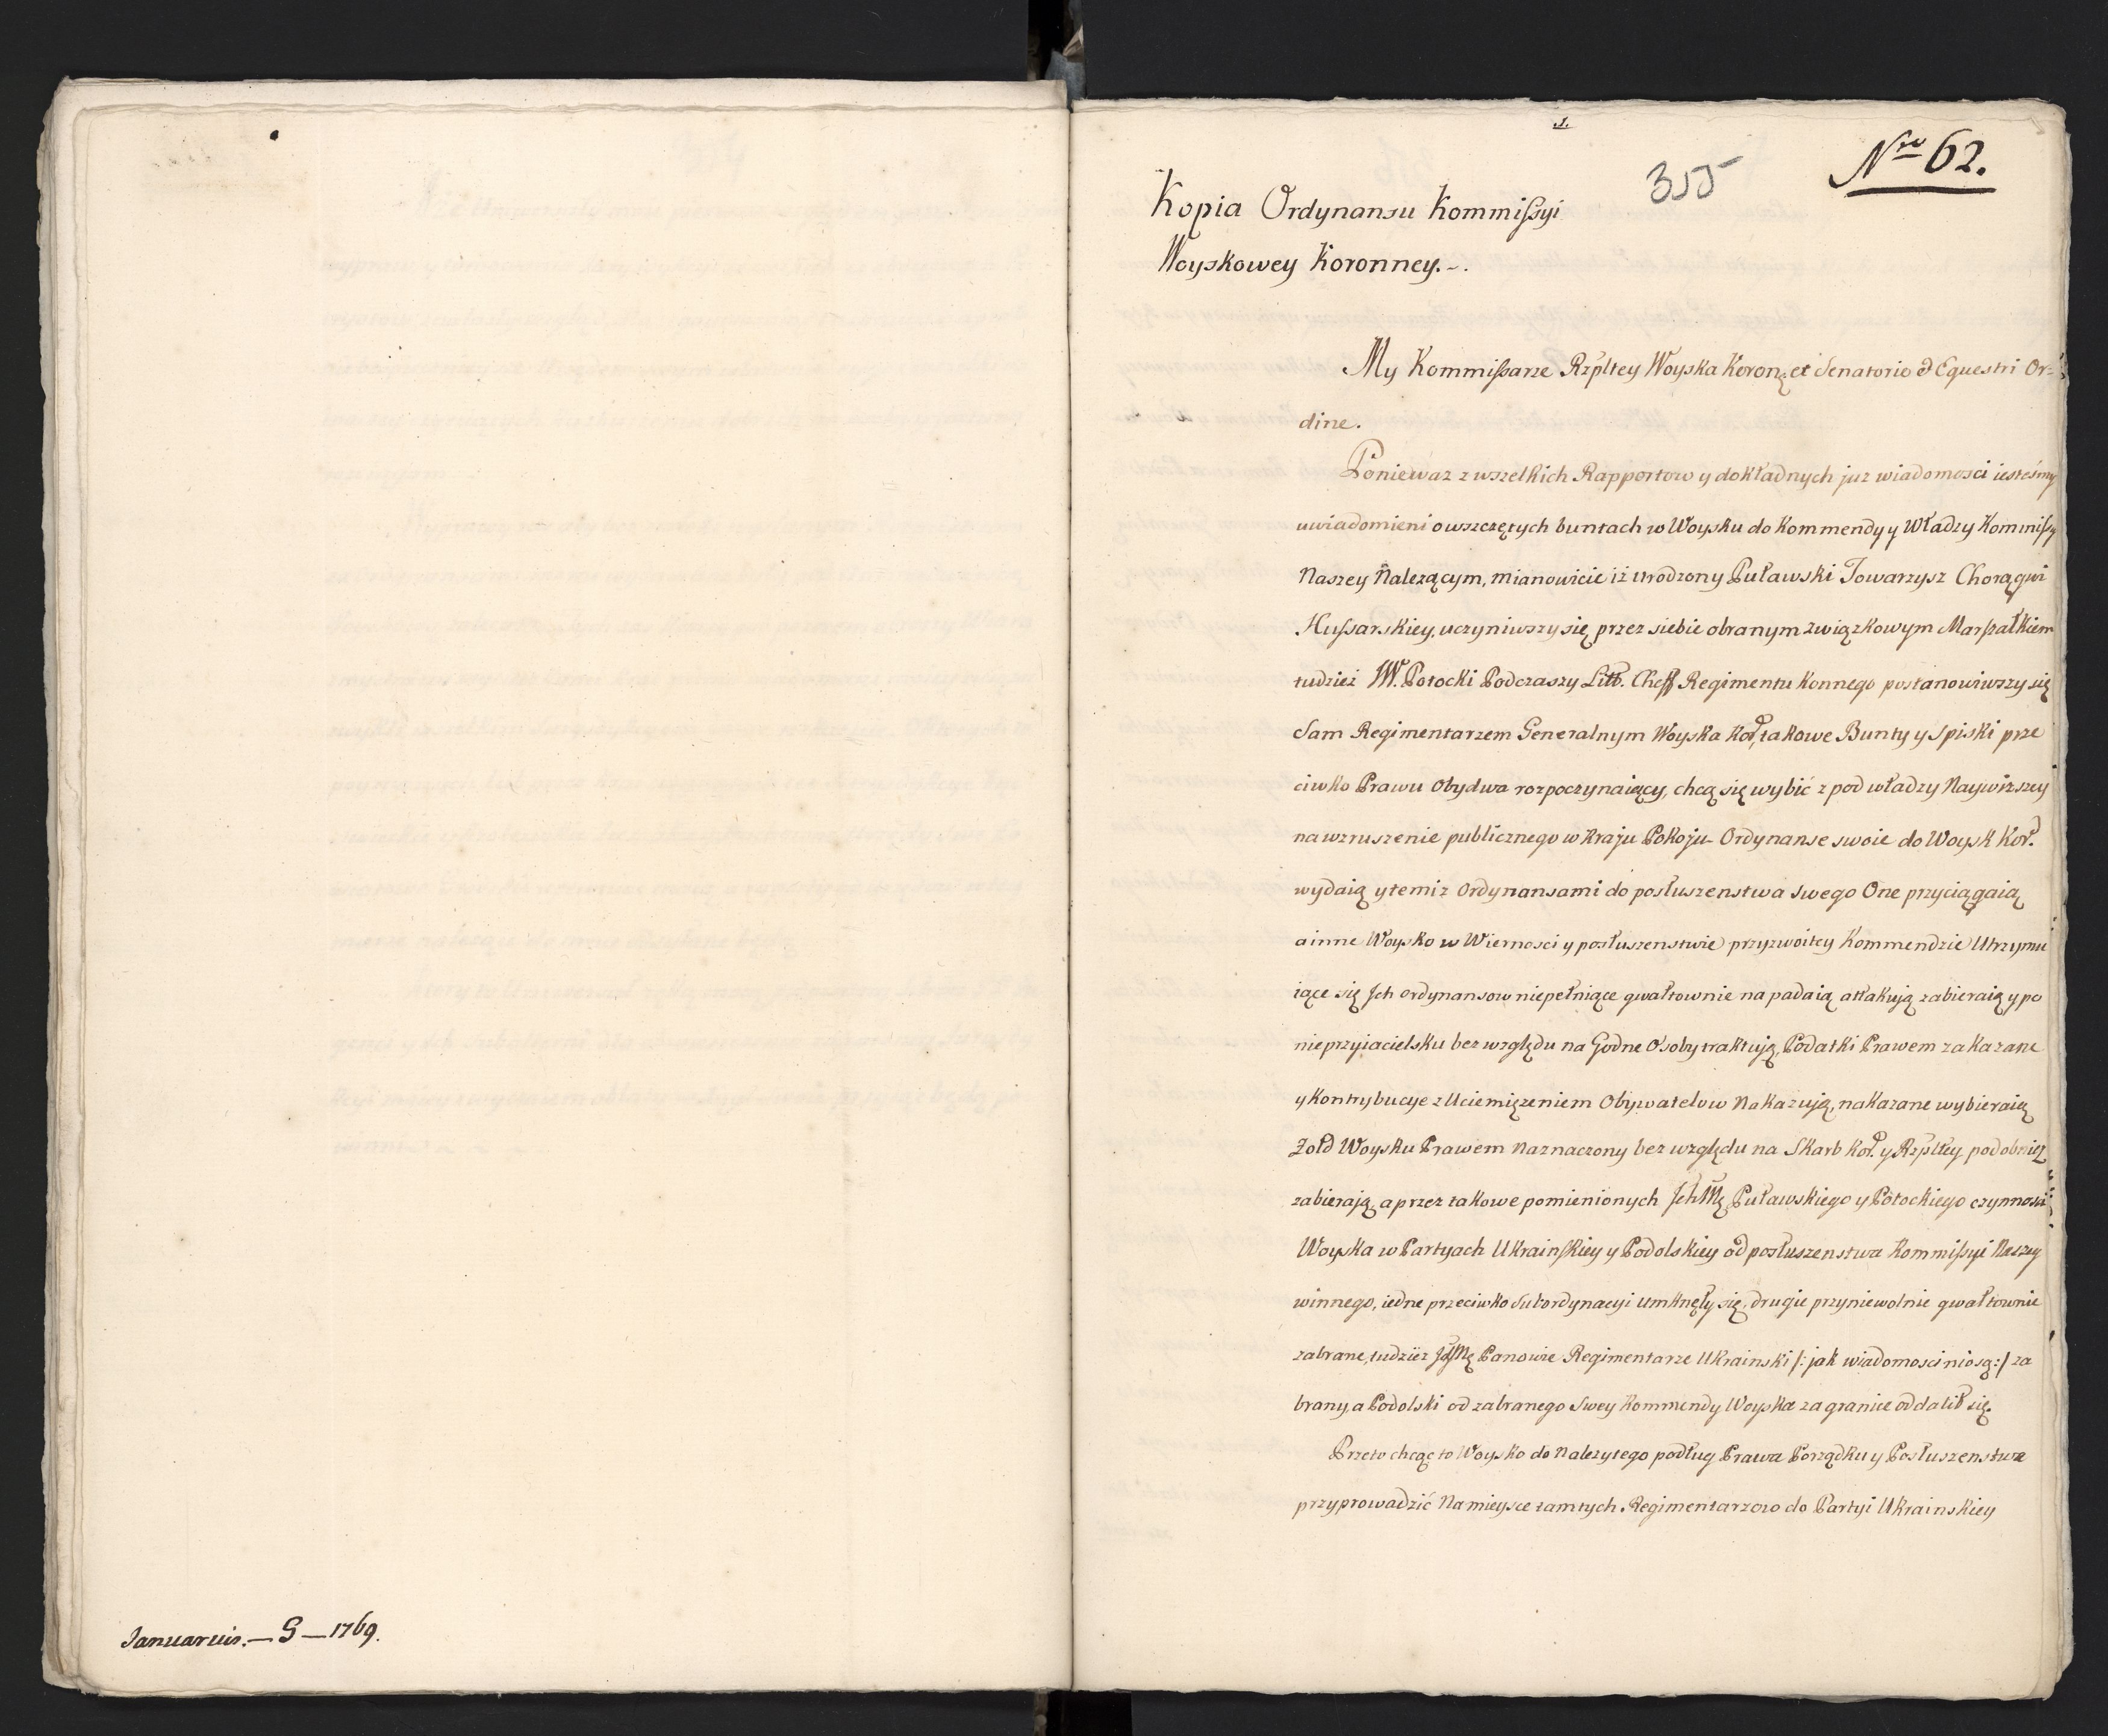 Januaruis. — S — 1769.
1.
355
Nro 62.
Kopia Ordynansu Kommißyi
Woyskowey Koronney. -.
My Kommißarze Rzpltey Woyska Koronę et Senatorio & Equestri Or=
dine.
Poniewaz z wszelkich Rapportow y dokładnych juz wiadomosci iesteśmy
uwiadomieni o wszczętych buntach w Woysku do Kommendy y Władzy Kommißy
Naszey Nalezącym, mianowicie iż urodzony Puławski Towarzysz Chorągwi
Hußarskiey, uczyniwszy się przez siebie obranym związkowym Marszałkiem
tudzież JW. Potocki Podczaszy Litt. Cheff Regimentu Konnego postanowiwszy się
Sam Regimentarzem Generalnym Woyska Kor, takowe Bunty y Spiski prze
ciwko Prawu Obydwa rozpoczynaiący, chcą się wybić z pod władzy Naywiższey
na wzruszenie publicznego w Kraju Pokoju Ordynanse swoie do Woysk Kor.
wydaią y temiż Ordynansami do posłuszenstwa swego One przyciągaią
a inne Woysko w Wiernosci y posłuszenstwie przyzwoitey Kommendzie Utrzymu
iące się Jch ordynansow niepełniące gwałtownie napadaią attakują zabieraią y po
nieprzyiacielsku bez względu na Godne Osoby traktują, Podatki Prawem zakazane
y Kontrybucye z Uciemiężeniem Obywatelow Nakazują, nakazane wybieraią
Zołd Woysku Prawem Naznaczony bez względu na Skarb Kor. y Rzpltey podobniez
zabierają, a przez takowe pomienionych Puławskiego y Potockiego czynnosci
Woyska w Partyach Ukrainskiey y Podolskiey od posłuszenstwa Kommißyi Naszey
winnego, iedne przeciwko Subordynacyi umknęły się, drugie przyniewolnie gwałtownie
zabrane, tudzież Panowie Regimentarze Ukrainski /: jak wiadomosci niosą :/ za
brany, a Podolski od zabranego Swey Kommendy Woyska za granice oddalił się.
Przeto chcąc to Woysko do Nalezytego podług Prawa Porządku y Posłuszenstwa
przyprowadzić Na mieysce tamtych Regimentarzow do Partyi Ukrainskiey